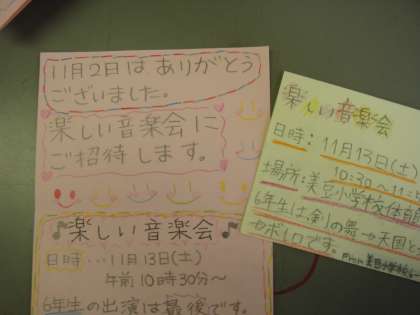 11月2日は ありがとう
ございました。
楽しい音楽会に
ご招待します。
♪楽しい音楽会♪
日時…11月13日(土)
午前10時30分〜
6年生の出演は最後です。
楽しい音楽会
日時：11月13日(土)
10:30〜11:
場所：美豆小学校体育
6年生は、剣の舞→天国と
→ボレロです。
美豆小学校